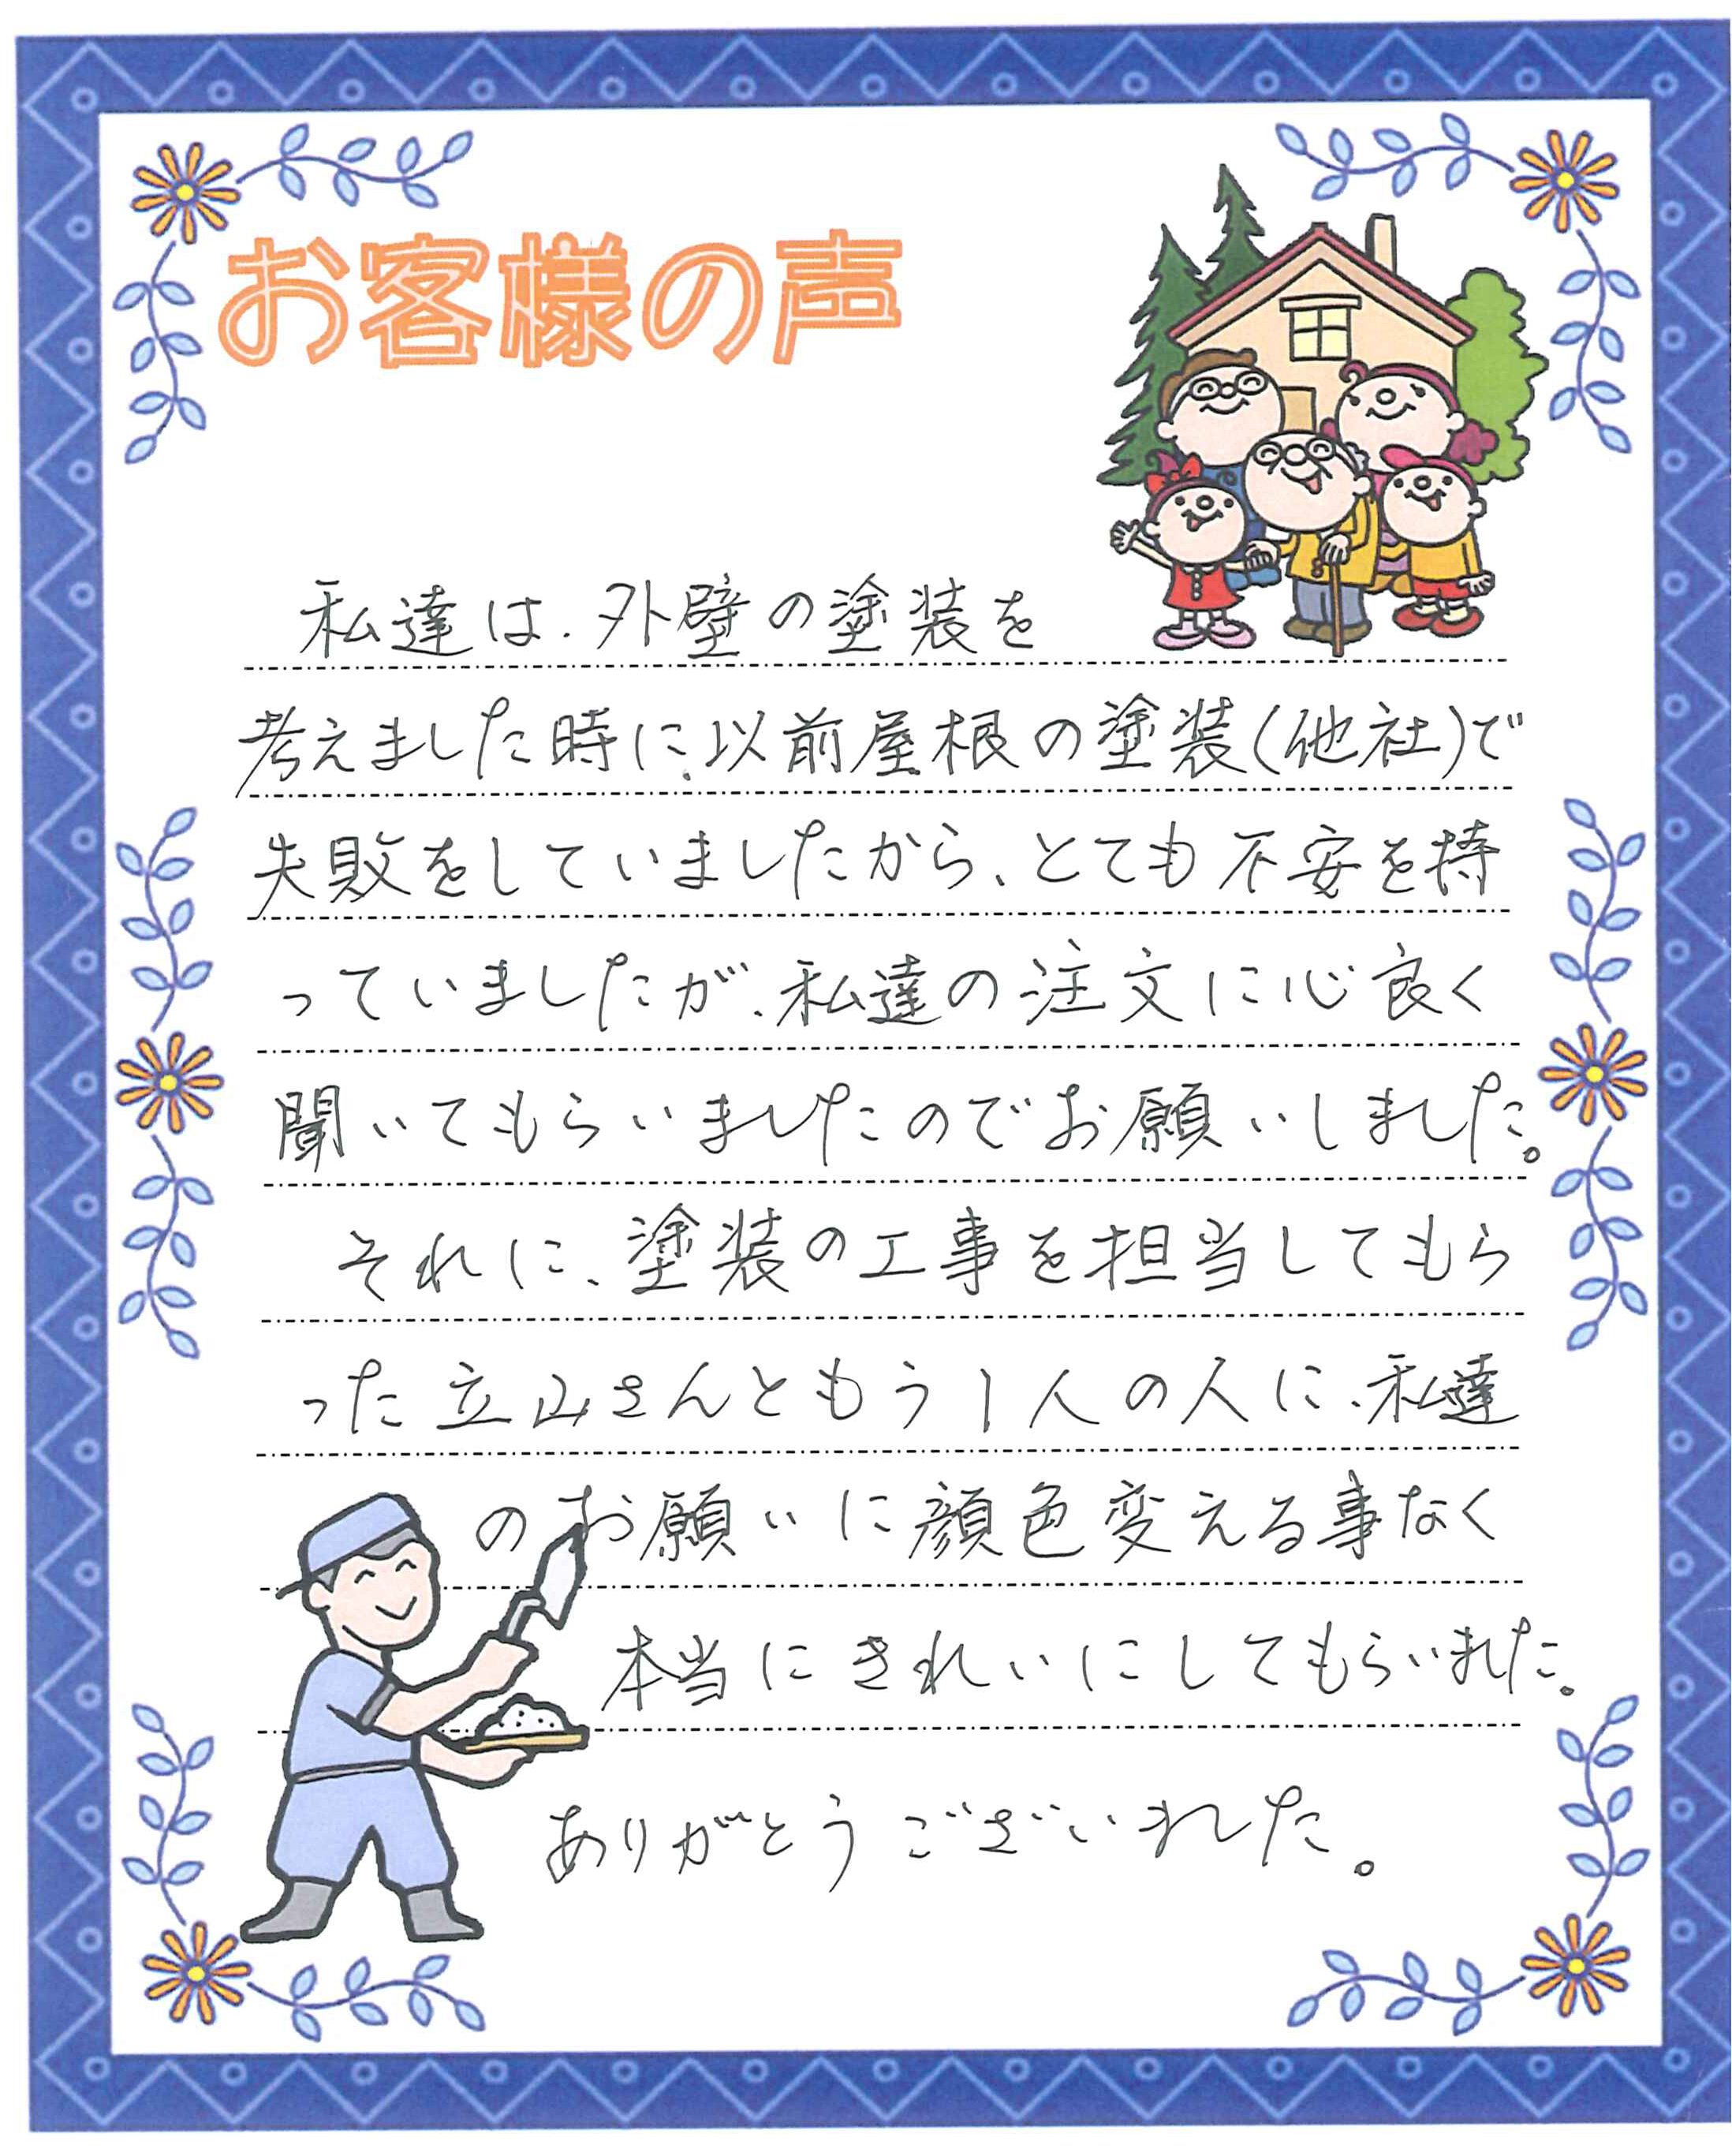 お客様の声
私達は、外壁の塗装を
考えました時に、以前屋根の塗装(他社)で
失敗をしていましたから、とても不安を持
っていましたが、私達の注文に心良く
聞いてもらいましたのでお願いしました。
それに、塗装の工事を担当してもら
った立山さんともう1人の人に、私達
のお願いに顔色変える事なく
本当にきれいにしてもらいました。
ありがとうございました。